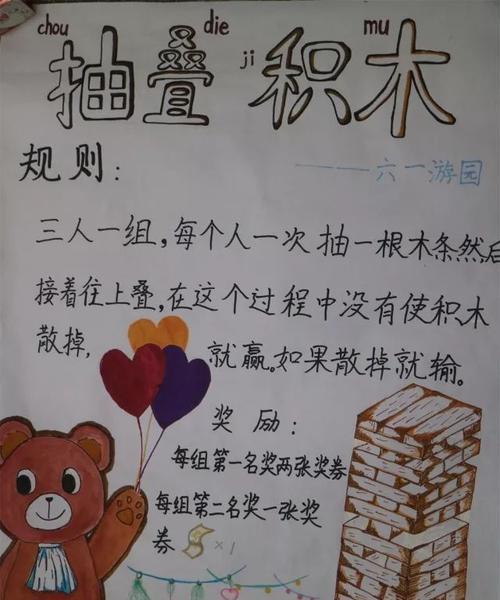 chou die ji mu
抽叠积木
规则：
——六一游园
三人一组，每个人一次抽一根木条然后
接着往上叠，在这个过程中没有使积木
散掉，就赢。如果散掉就输。
奖励：
每组第一名奖两张奖券
每组第二名奖一张奖
券 ×1